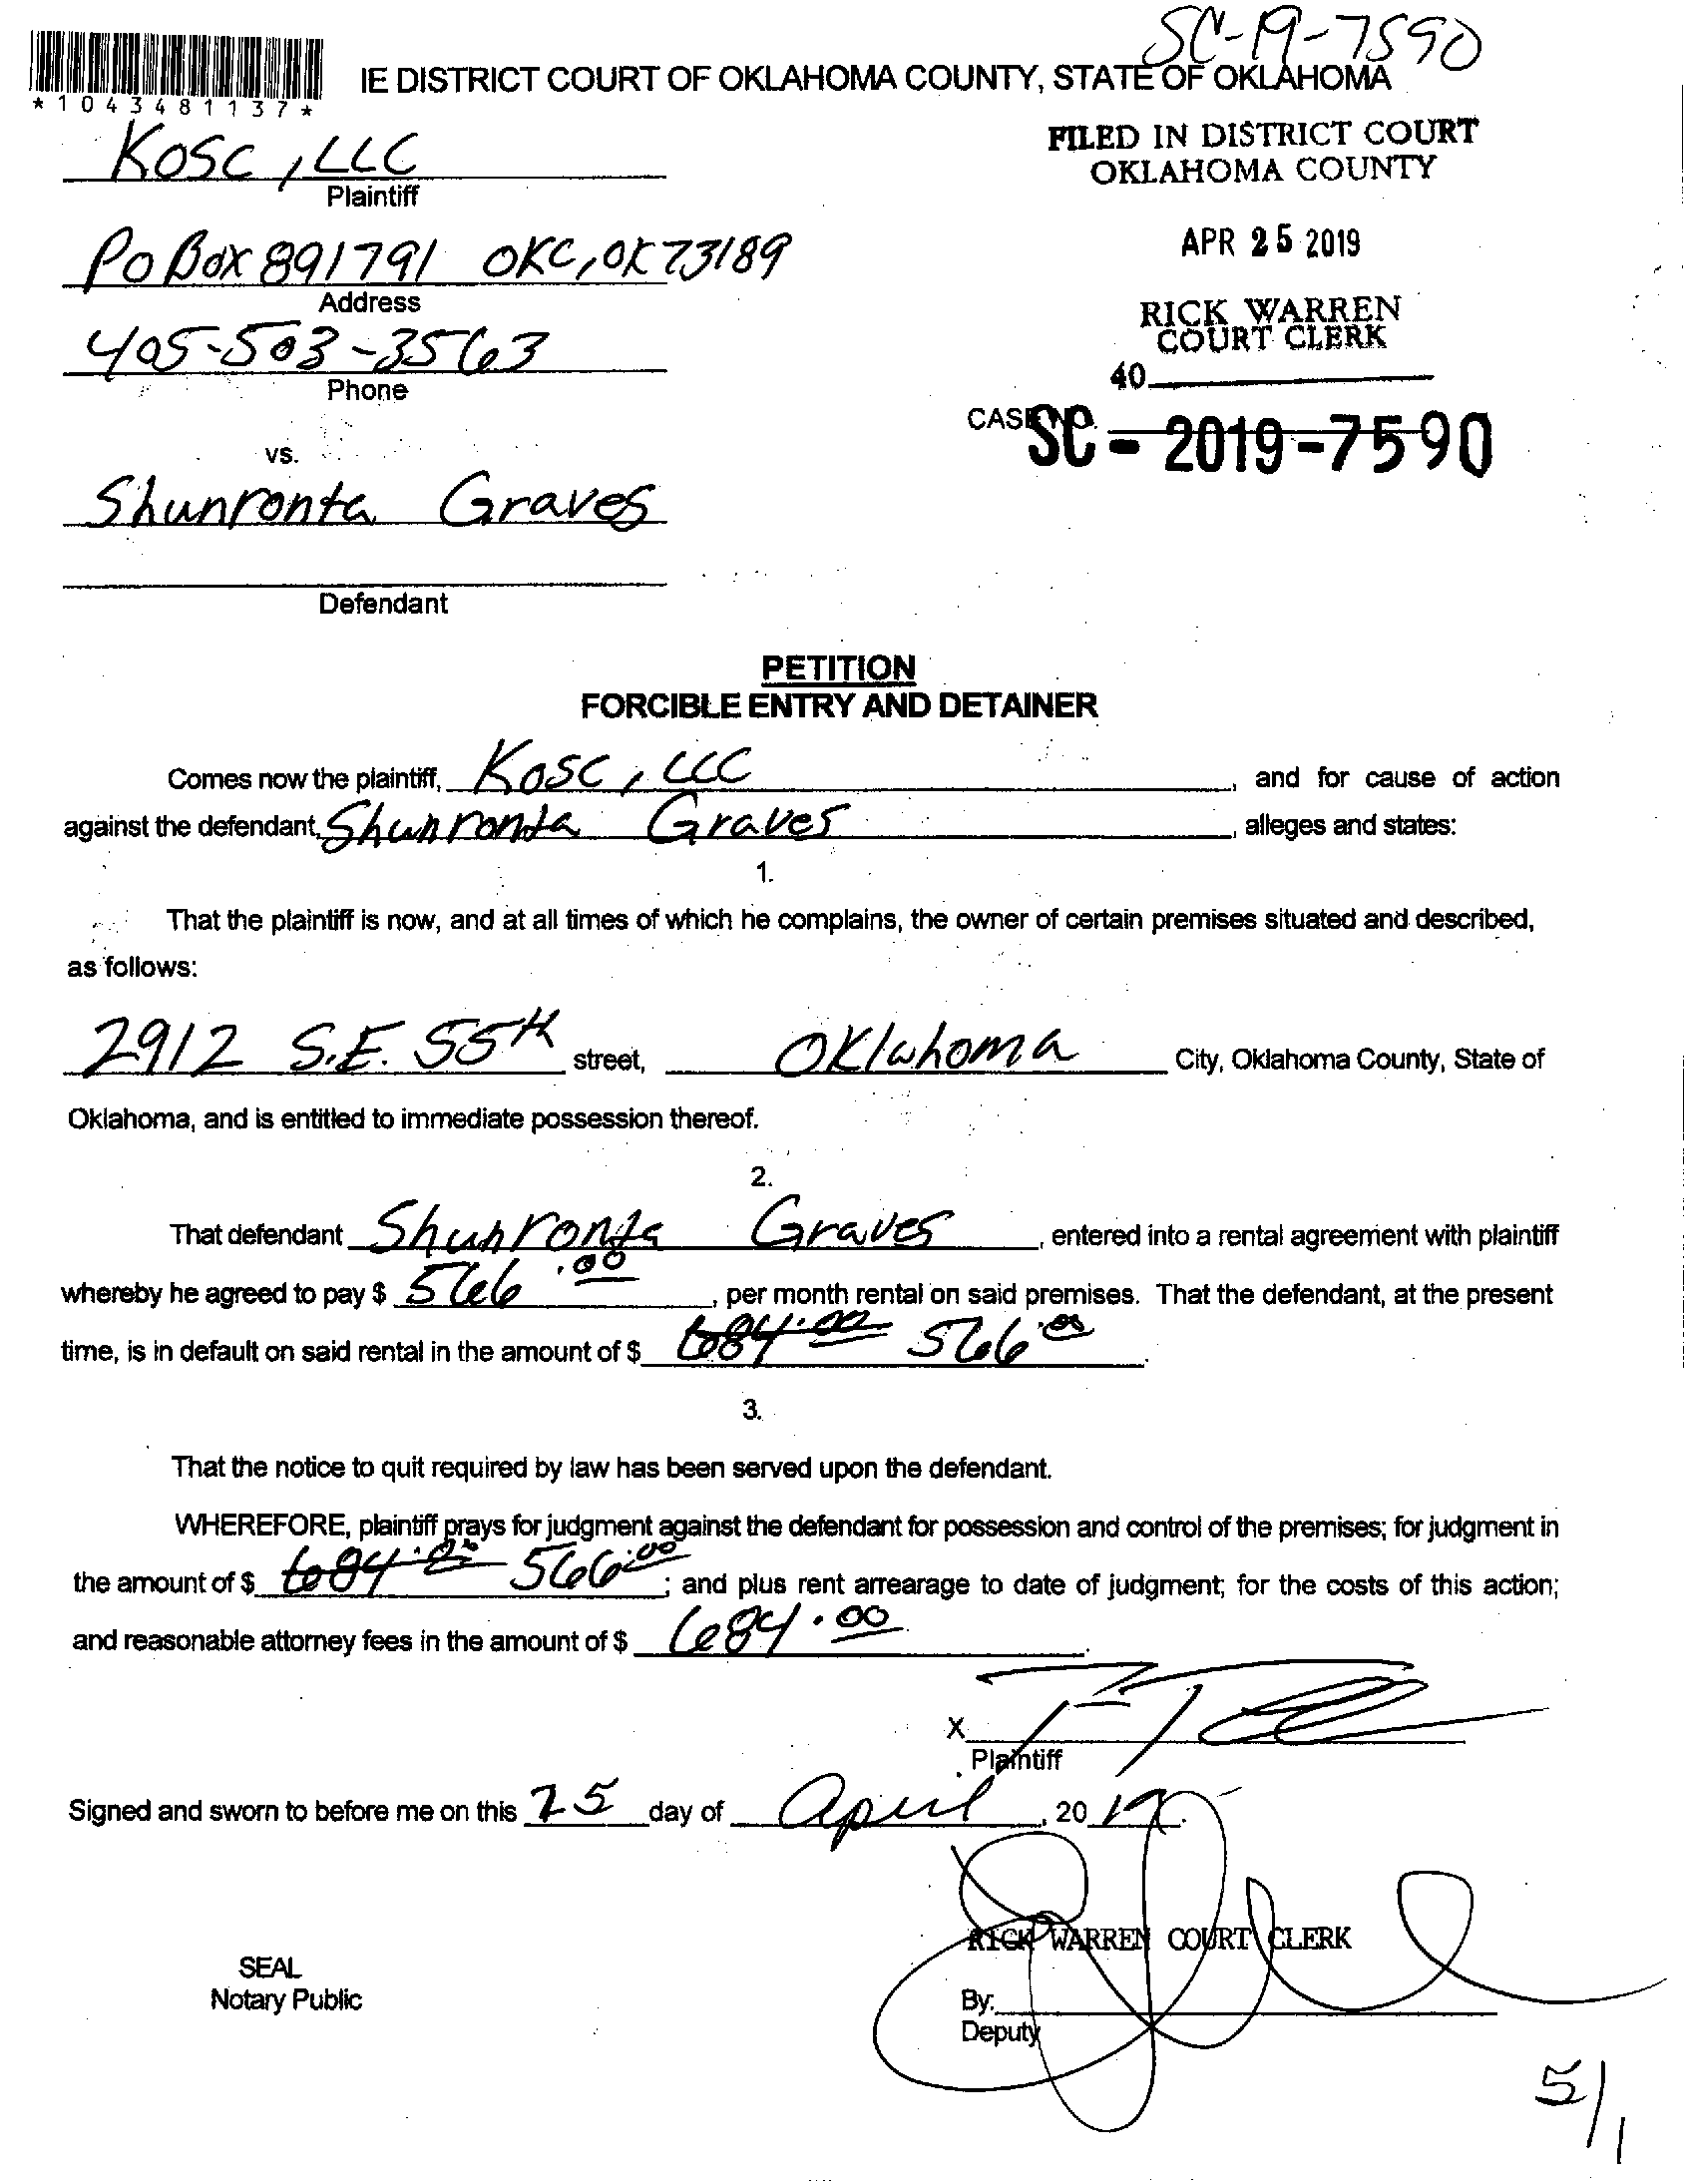 SC-19-7590
IE DISTRICT COURT OF OKLAHOMA COUNTY, STATE OF OKLAHOMA
*1043481137*
KOSC, LLC
Plaintiff
FILED IN DISTRICT COURT
OKLAHOMA COUNTY
PO Box 891791 OKC, OK 73189
Address
APR 25 2019
405-503-3563
Phone
RICK WARREN
COURT CLERK
40
vs.
CASE NO.
SC - 2019-7590
Shunronta Graves
Defendant
PETITION
FORCIBLE ENTRY AND DETAINER
Comes now the plaintiff, KOSC, LLC, and for cause of action
against the defendant, Shunronta Graves, alleges and states:
1.
That the plaintiff is now, and at all times of which he complains, the owner of certain premises situated and described,
as follows:
2912 S.E. 55th street, Oklahoma City, Oklahoma County, State of
Oklahoma, and is entitled to immediate possession thereof.
2.
That defendant Shunronta Graves, entered into a rental agreement with plaintiff
whereby he agreed to pay $ 566.00, per month rental on said premises. That the defendant, at the present
time, is in default on said rental in the amount of $ 684.00 566.00.
3.
That the notice to quit required by law has been served upon the defendant.
WHEREFORE, plaintiff prays for judgment against the defendant for possession and control of the premises; for judgment in
the amount of $ 684.00 566.00; and plus rent arrearage to date of judgment; for the costs of this action;
and reasonable attorney fees in the amount of $ 684.00.
X
Plaintiff
Signed and sworn to before me on this 25 day of April, 2019.
RICK WARREN COURT CLERK
SEAL
Notary Public
By:
Deputy
5/1